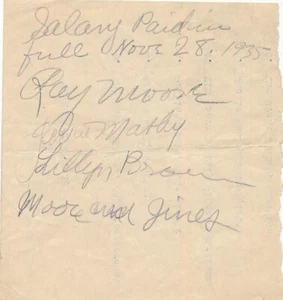 Salary Paid in
full Nove 28. 1935.
Ray Moore
Mathy
Lillyn Brown
Moore and Jines